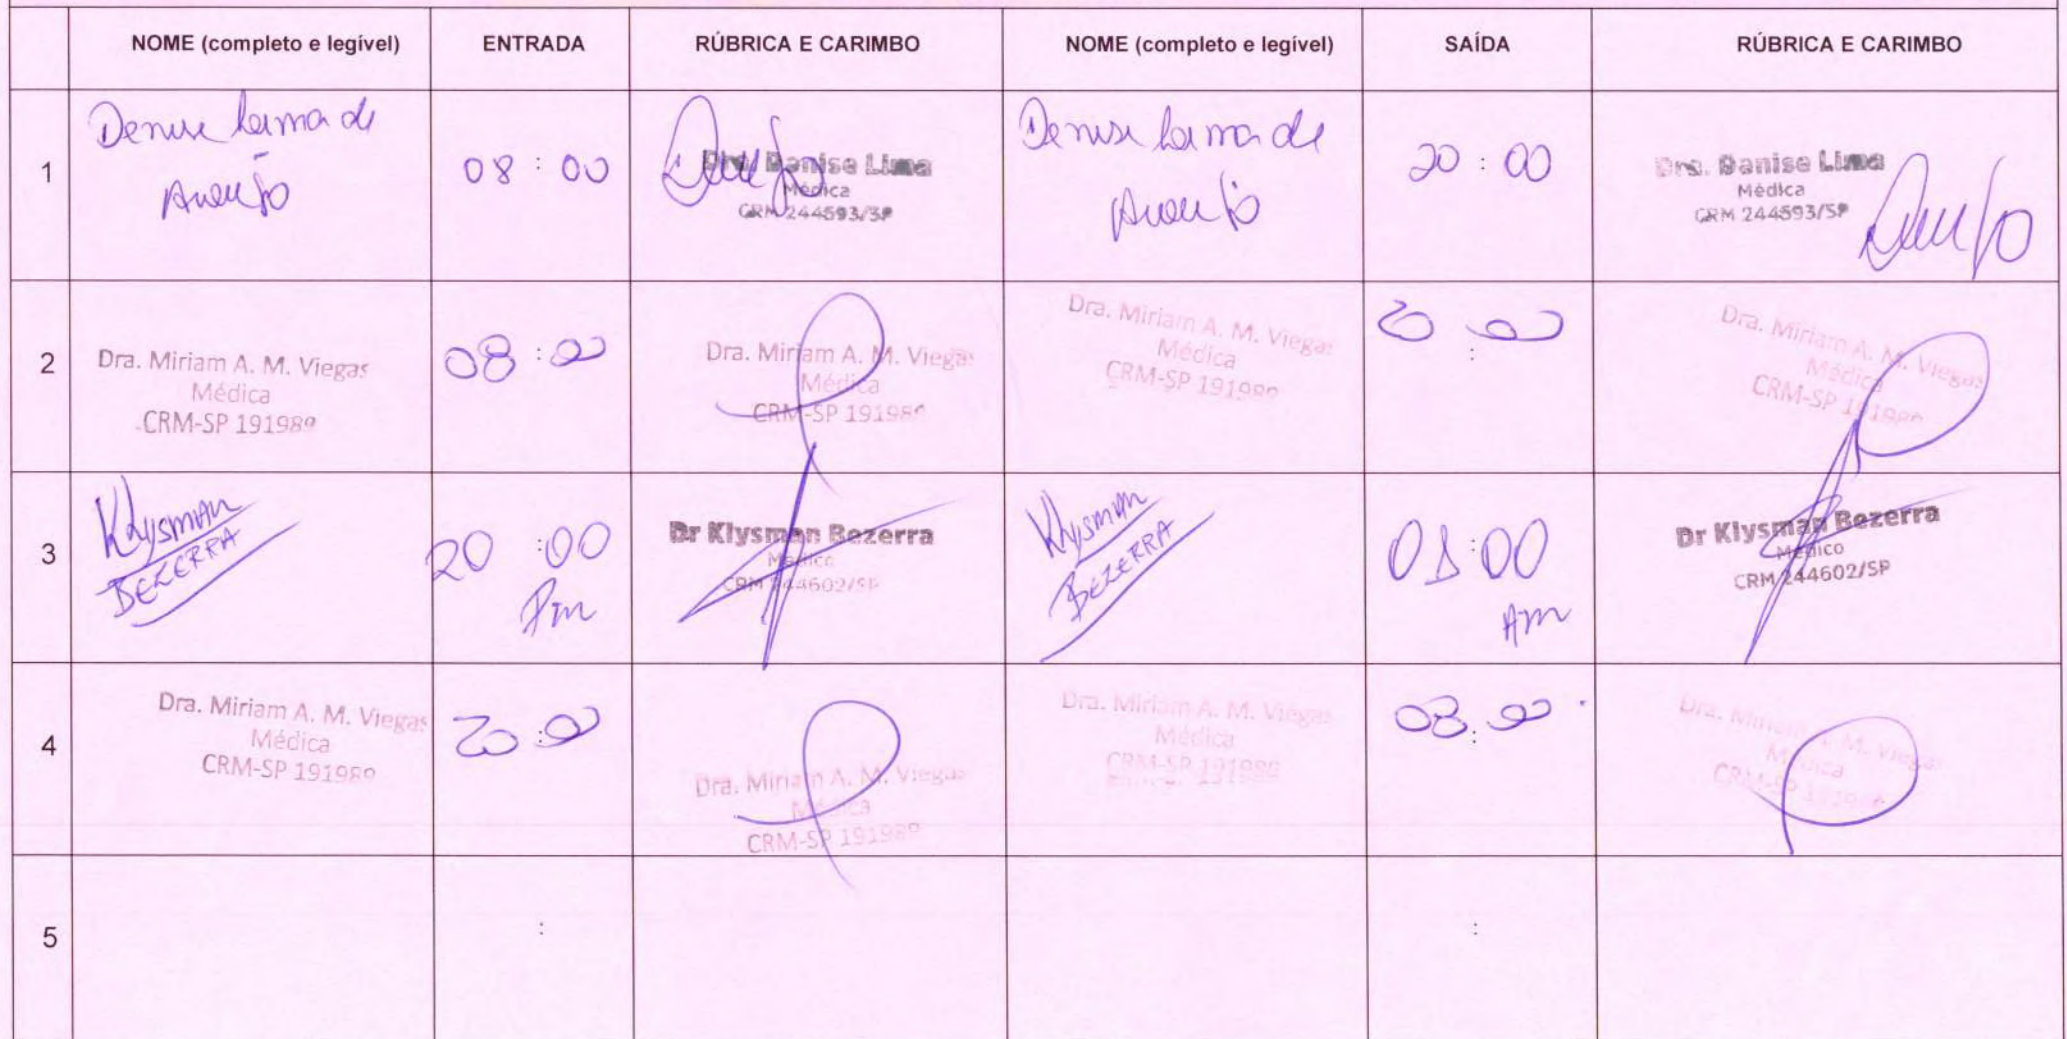 NOME (completo e legível) ENTRADA RÚBRICA E CARIMBO NOME (completo e legível) SAÍDA RÚBRICA E CARIMBO
1
Denise Lima de
Araujo
08 : 00
Dra. Denise Lima
Médica
CRM 244593/SP
Denise Lima de
Araujo
20 : 00
Dra. Denise Lima
Médica
CRM 244593/SP
2
Dra. Miriam A. M. Viegas
Médica
CRM-SP 191989
08 : 00
Dra. Miriam A. M. Viegas
Médica
CRM-SP 191989
Dra. Miriam A. M. Viegas
Médica
CRM-SP 191989
20 : 00
Dra. Miriam A. M. Viegas
Médica
CRM-SP 191989
3
Klysman
BEZERRA
20 : 00
Pm
Dr Klysman Bezerra
Médico
CRM 244602/SP
Klysman
BEZERRA
01 : 00
Am
Dr Klysman Bezerra
Médico
CRM 244602/SP
4
Dra. Miriam A. M. Viegas
Médica
CRM-SP 191989
20 : 00
Dra. Miriam A. M. Viegas
Médica
CRM-SP 191989
Dra. Miriam A. M. Viegas
Médica
CRM-SP 191989
08 : 00
Dra. Miriam A. M. Viegas
Médica
CRM-SP 191989
5
:
: